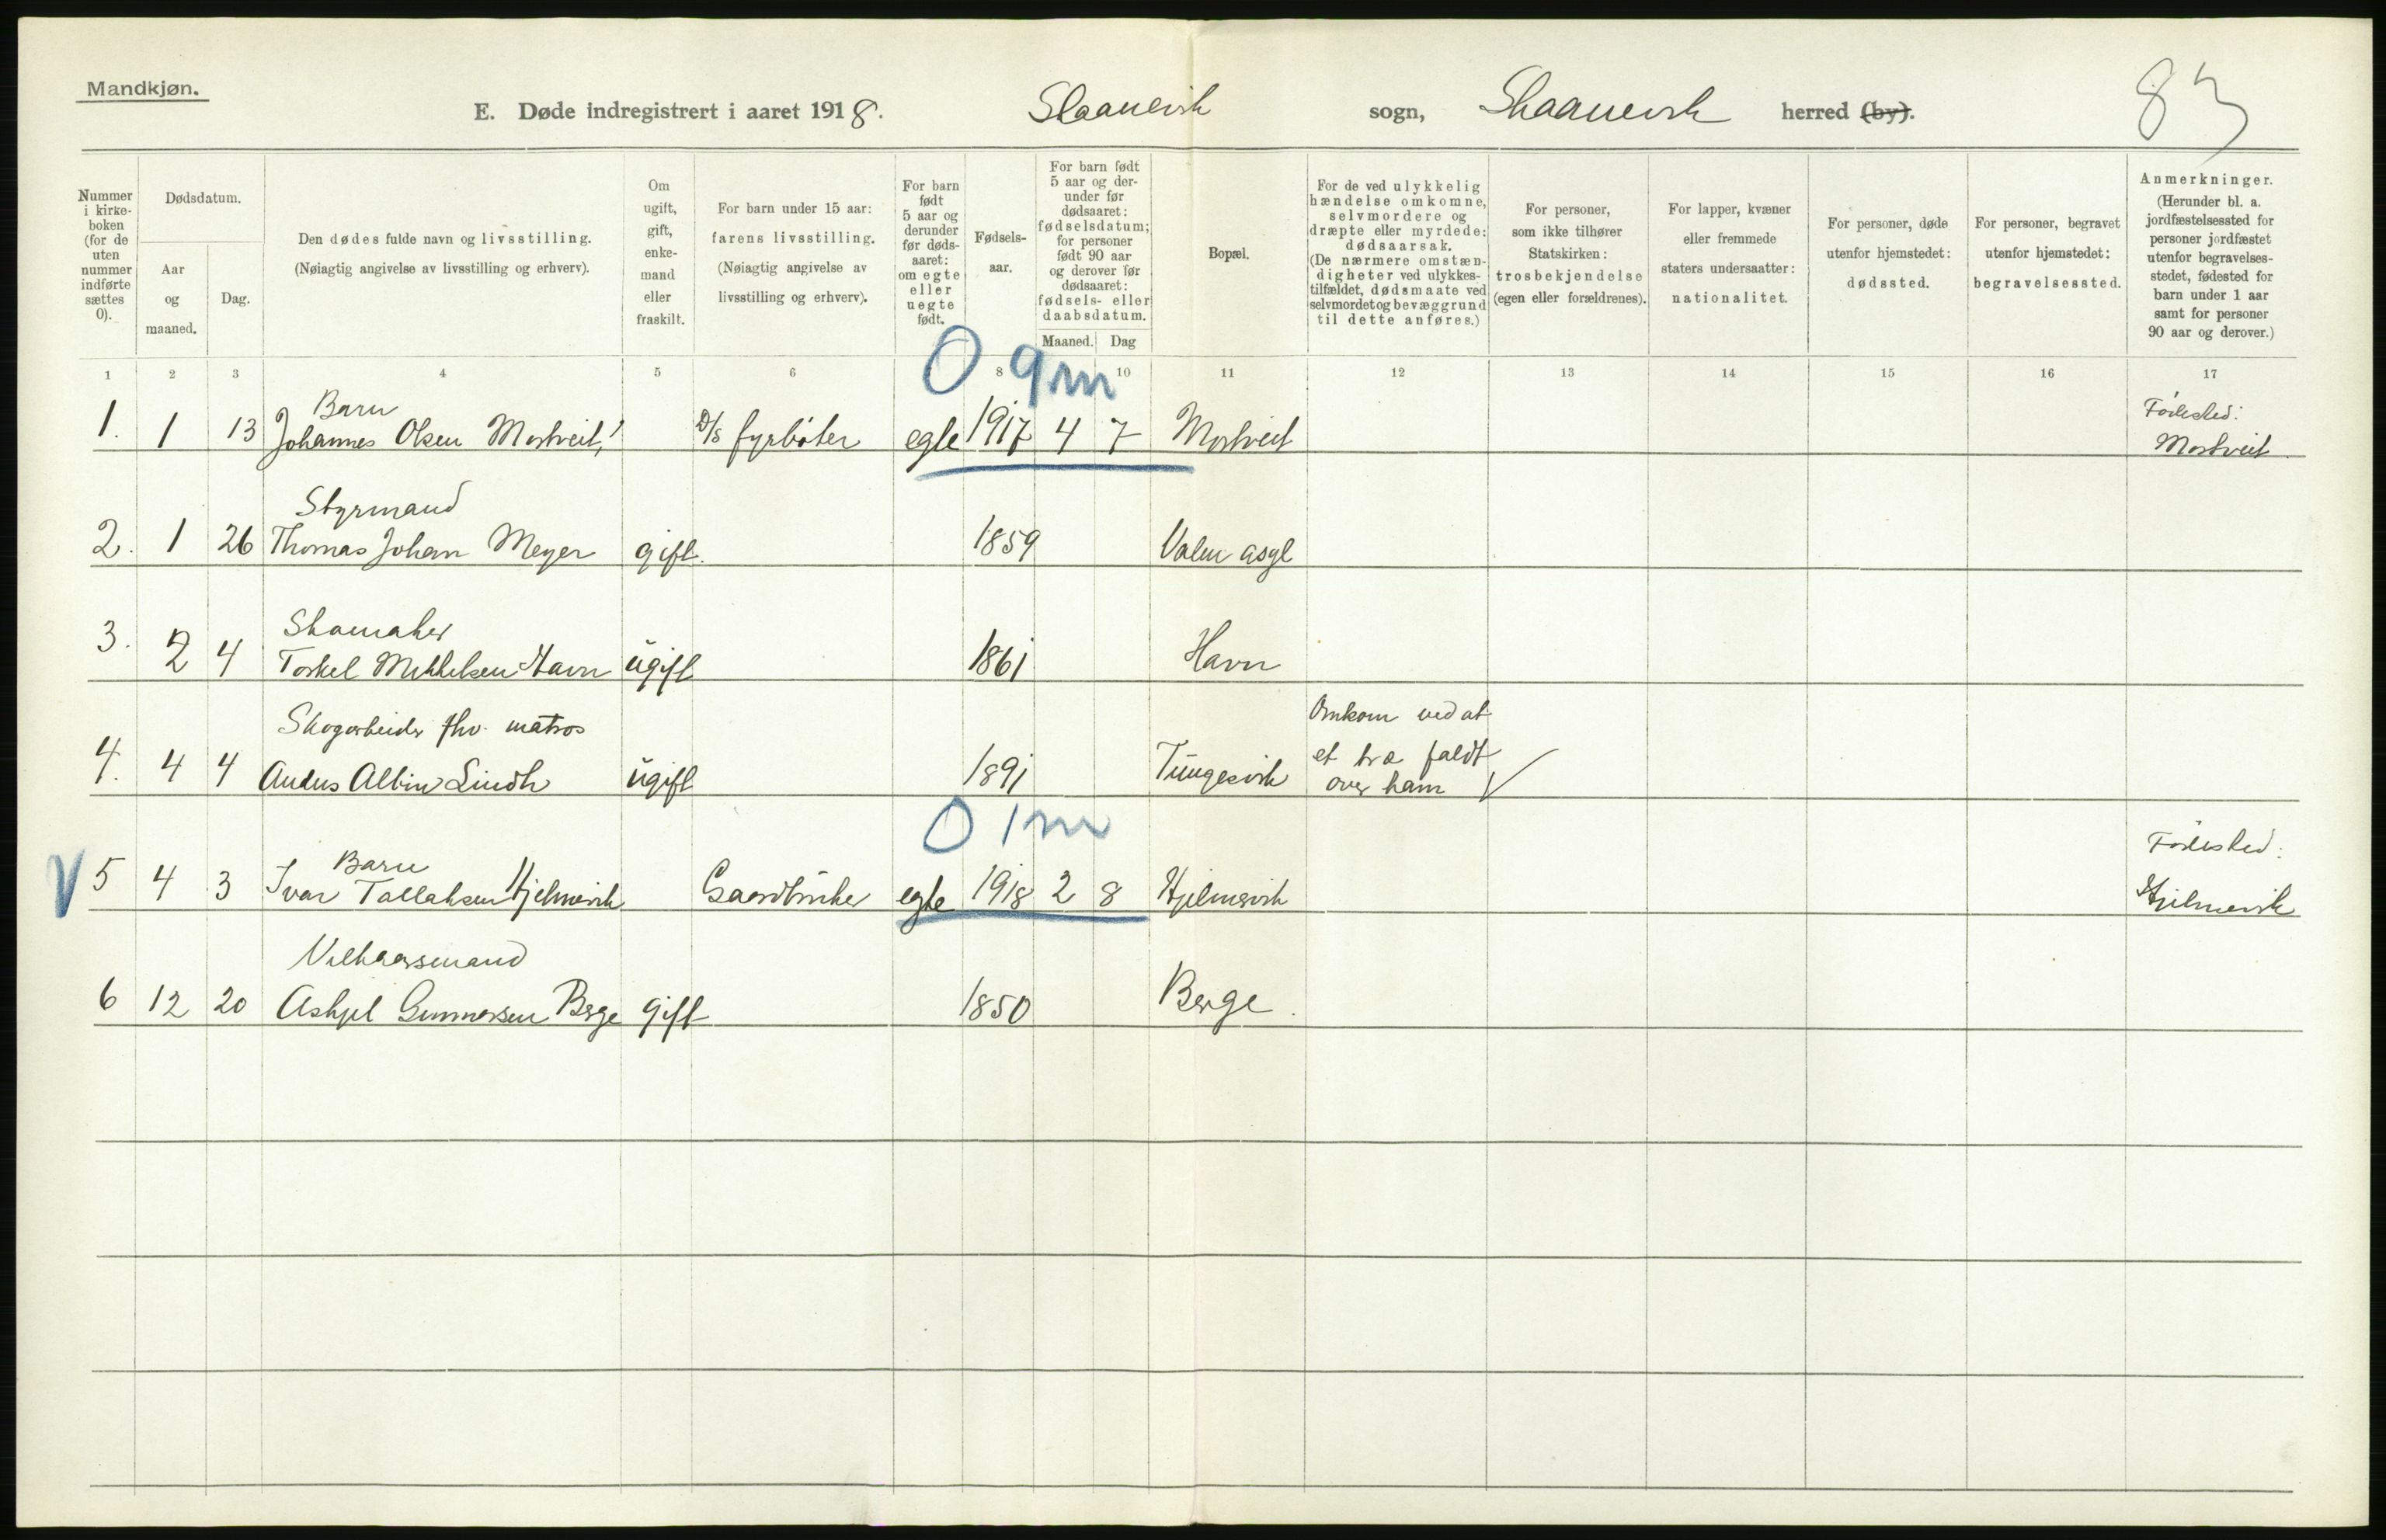 Mandkjøn.
E. Døde indregistrert i aaret 1918. Skaanevik sogn, Skaanevik herred (by).
83
Nummer i kirke-boken (for de uten nummer indførte sættes 0).
Dødsdatum.
Aar og maaned.
Dag.
Den dødes fulde navn og livsstilling.
(Nøiagtig angivelse av livsstilling og erhverv).
Om ugift, gift, enke-mand eller fraskilt.
For barn under 15 aar: farens livsstilling.
(Nøiagtig angivelse av livsstilling og erhverv).
For barn født 5 aar og derunder før døds-aaret: om egte eller uegte født.
Fødsels-aar.
For barn født 5 aar og der-under før dødsaaret: fødselsdatum; for personer født 90 aar og derover før dødsaaret: fødsels- eller daabsdatum.
Maaned. Dag
Bopæl.
For de ved ulykkelig hændelse omkomne, selvmordere og dræpte eller myrdede: dødsaarsak.
(De nærmere omstæn-digheter ved ulykkes-tilfældet, dødsmaate ved selvmordet og bevæggrund til dette anføres.)
For personer, som ikke tilhører Statskirken: trosbekjendelse (egen eller forældrenes).
For lapper, kvæner eller fremmede staters undersaatter: nationalitet.
For personer, døde utenfor hjemstedet: dødssted.
For personer, begravet utenfor hjemstedet: begravelsessted.
Anmerkninger.
(Herunder bl. a. jordfæstelsessted for personer jordfæstet utenfor begravelses-stedet, fødested for barn under 1 aar samt for personer 90 aar og derover.)
1 2 3 4 5 6 8 10 11 12 13 14 15 16 17
0 9 m
Barn Fødested:
1. 1 13 Johannes Olsen Mostveit, D/S fyrbøter egte 1917 4 7 Mostveit Mostveit
Styrmand
2. 1 26 Thomas Johan Meyer gift. 1859 Valen asyl
Skomaker
3. 2 4 Torkel Mikkelsen Havn ugift 1861 Havn
Skogarbeider fhv. matros Omkom ved at et træ faldt over ham
4. 4 4 Anders Albin Lindh ugift 1891 Tungesvik
0 1 m
Barn Fødested:
V 5 4 3 Ivar Tollaksen Hjelmevik Gaardbruker egte 1918 2 8 Hjelmevik Hjelmevik
Vilkaarsmand
6 12 20 Askjel Gunnarsen Berge gift 1850 Berge.